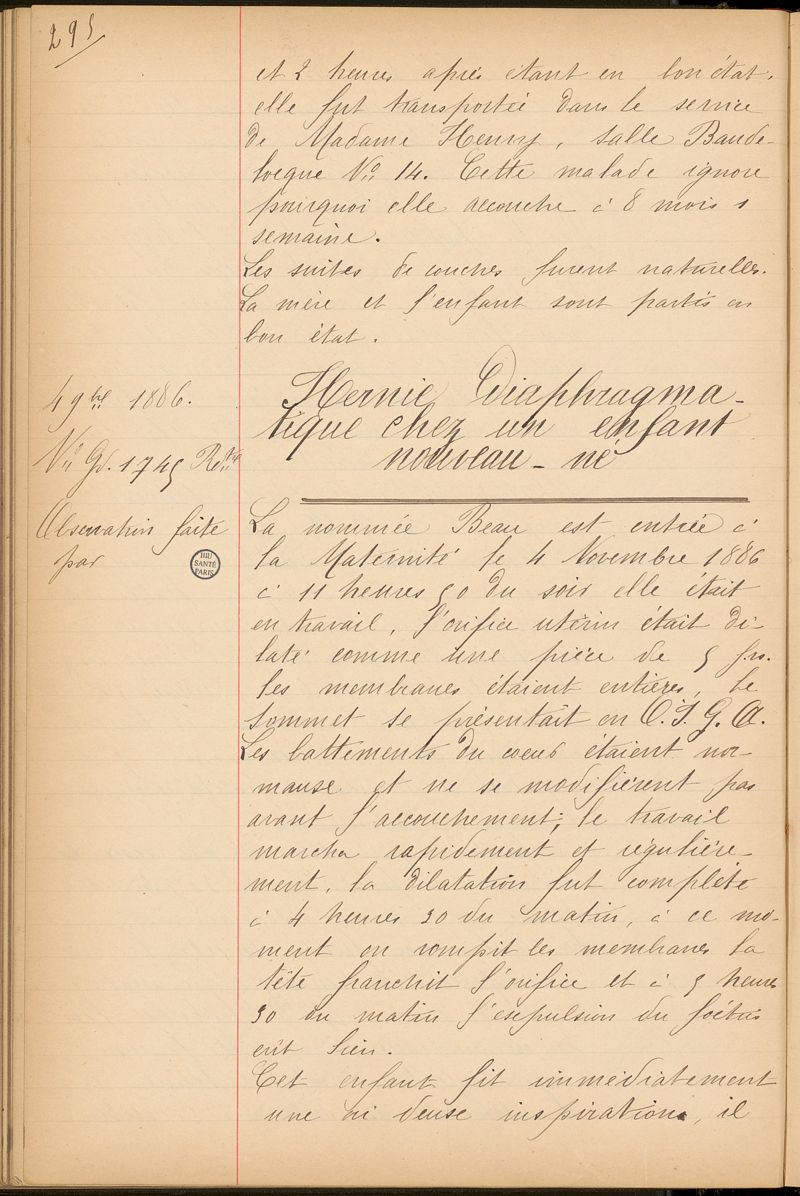 295
et 2 heures après étant en bon état,
elle fut transportée dans le service
de Madame Henry, salle Baude-
locque No 14. Cette malade ignore
pourquoi elle accouche à 8 mois 1
semaine.
Les suites de couches furent naturelles.
La mère et l'enfant sont partis en
bon état.
4 9bre 1886.
No Gd. 1745
Observation faite
par
BIU
SANTÉ
PARIS
Hernie Diaphragma-
tique chez un enfant
nouveau-né
La nommée Beau est entrée à
la Maternité le 4 Novembre 1886
à 11 heures 50 du soir elle était
en travail, l'orifice utérin était di-
laté comme une pièce de 5 frs.
les membranes étaient entières, le
sommet se présentait en O.I.G.A.
Les battements du coeur étaient nor-
maux et ne se modifièrent pas
avant l'accouchement; le travail
marcha rapidement et régulière-
ment, la dilatation fut complète
à 4 heures 30 du matin, à ce mo-
ment on rompit les membranes la
tête franchit l'orifice et à 5 heures
30 du matin l'expulsion du foetus
eût lieu.
Cet enfant fit immédiatement
une inspiration, il